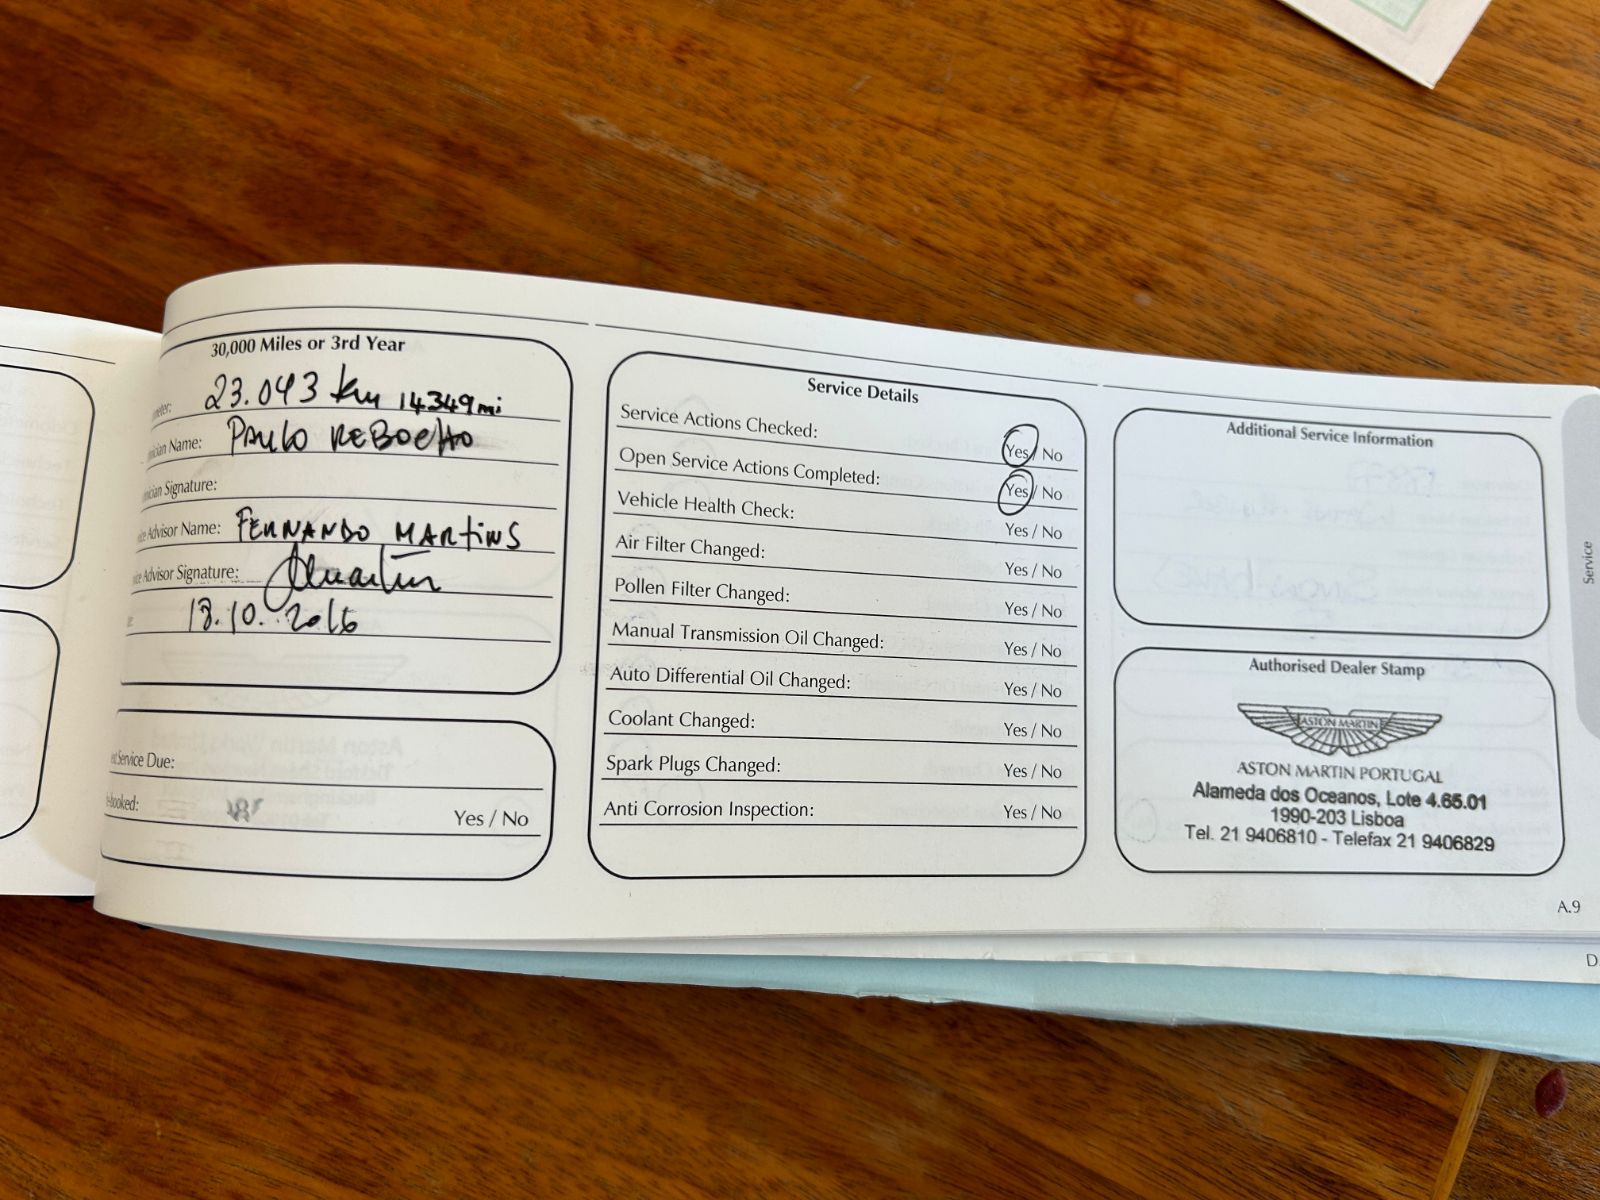 30,000 Miles or 3rd Year
23.043 km 14349mi
Name: PAULO REBOCHO
Signature:
Advisor Name: FERNANDO MARTINS
Advisor Signature:
18.10.2016
Service Due:
Yes / No
Service Details
Service Actions Checked: Yes / No
Open Service Actions Completed: Yes / No
Vehicle Health Check: Yes / No
Air Filter Changed: Yes / No
Pollen Filter Changed: Yes / No
Manual Transmission Oil Changed: Yes / No
Auto Differential Oil Changed: Yes / No
Coolant Changed: Yes / No
Spark Plugs Changed: Yes / No
Anti Corrosion Inspection: Yes / No
Additional Service Information
Authorised Dealer Stamp
ASTON MARTIN
ASTON MARTIN PORTUGAL
Alameda dos Oceanos, Lote 4.65.01
1990-203 Lisboa
Tel. 21 9406810 - Telefax 21 9406829
Service
A.9